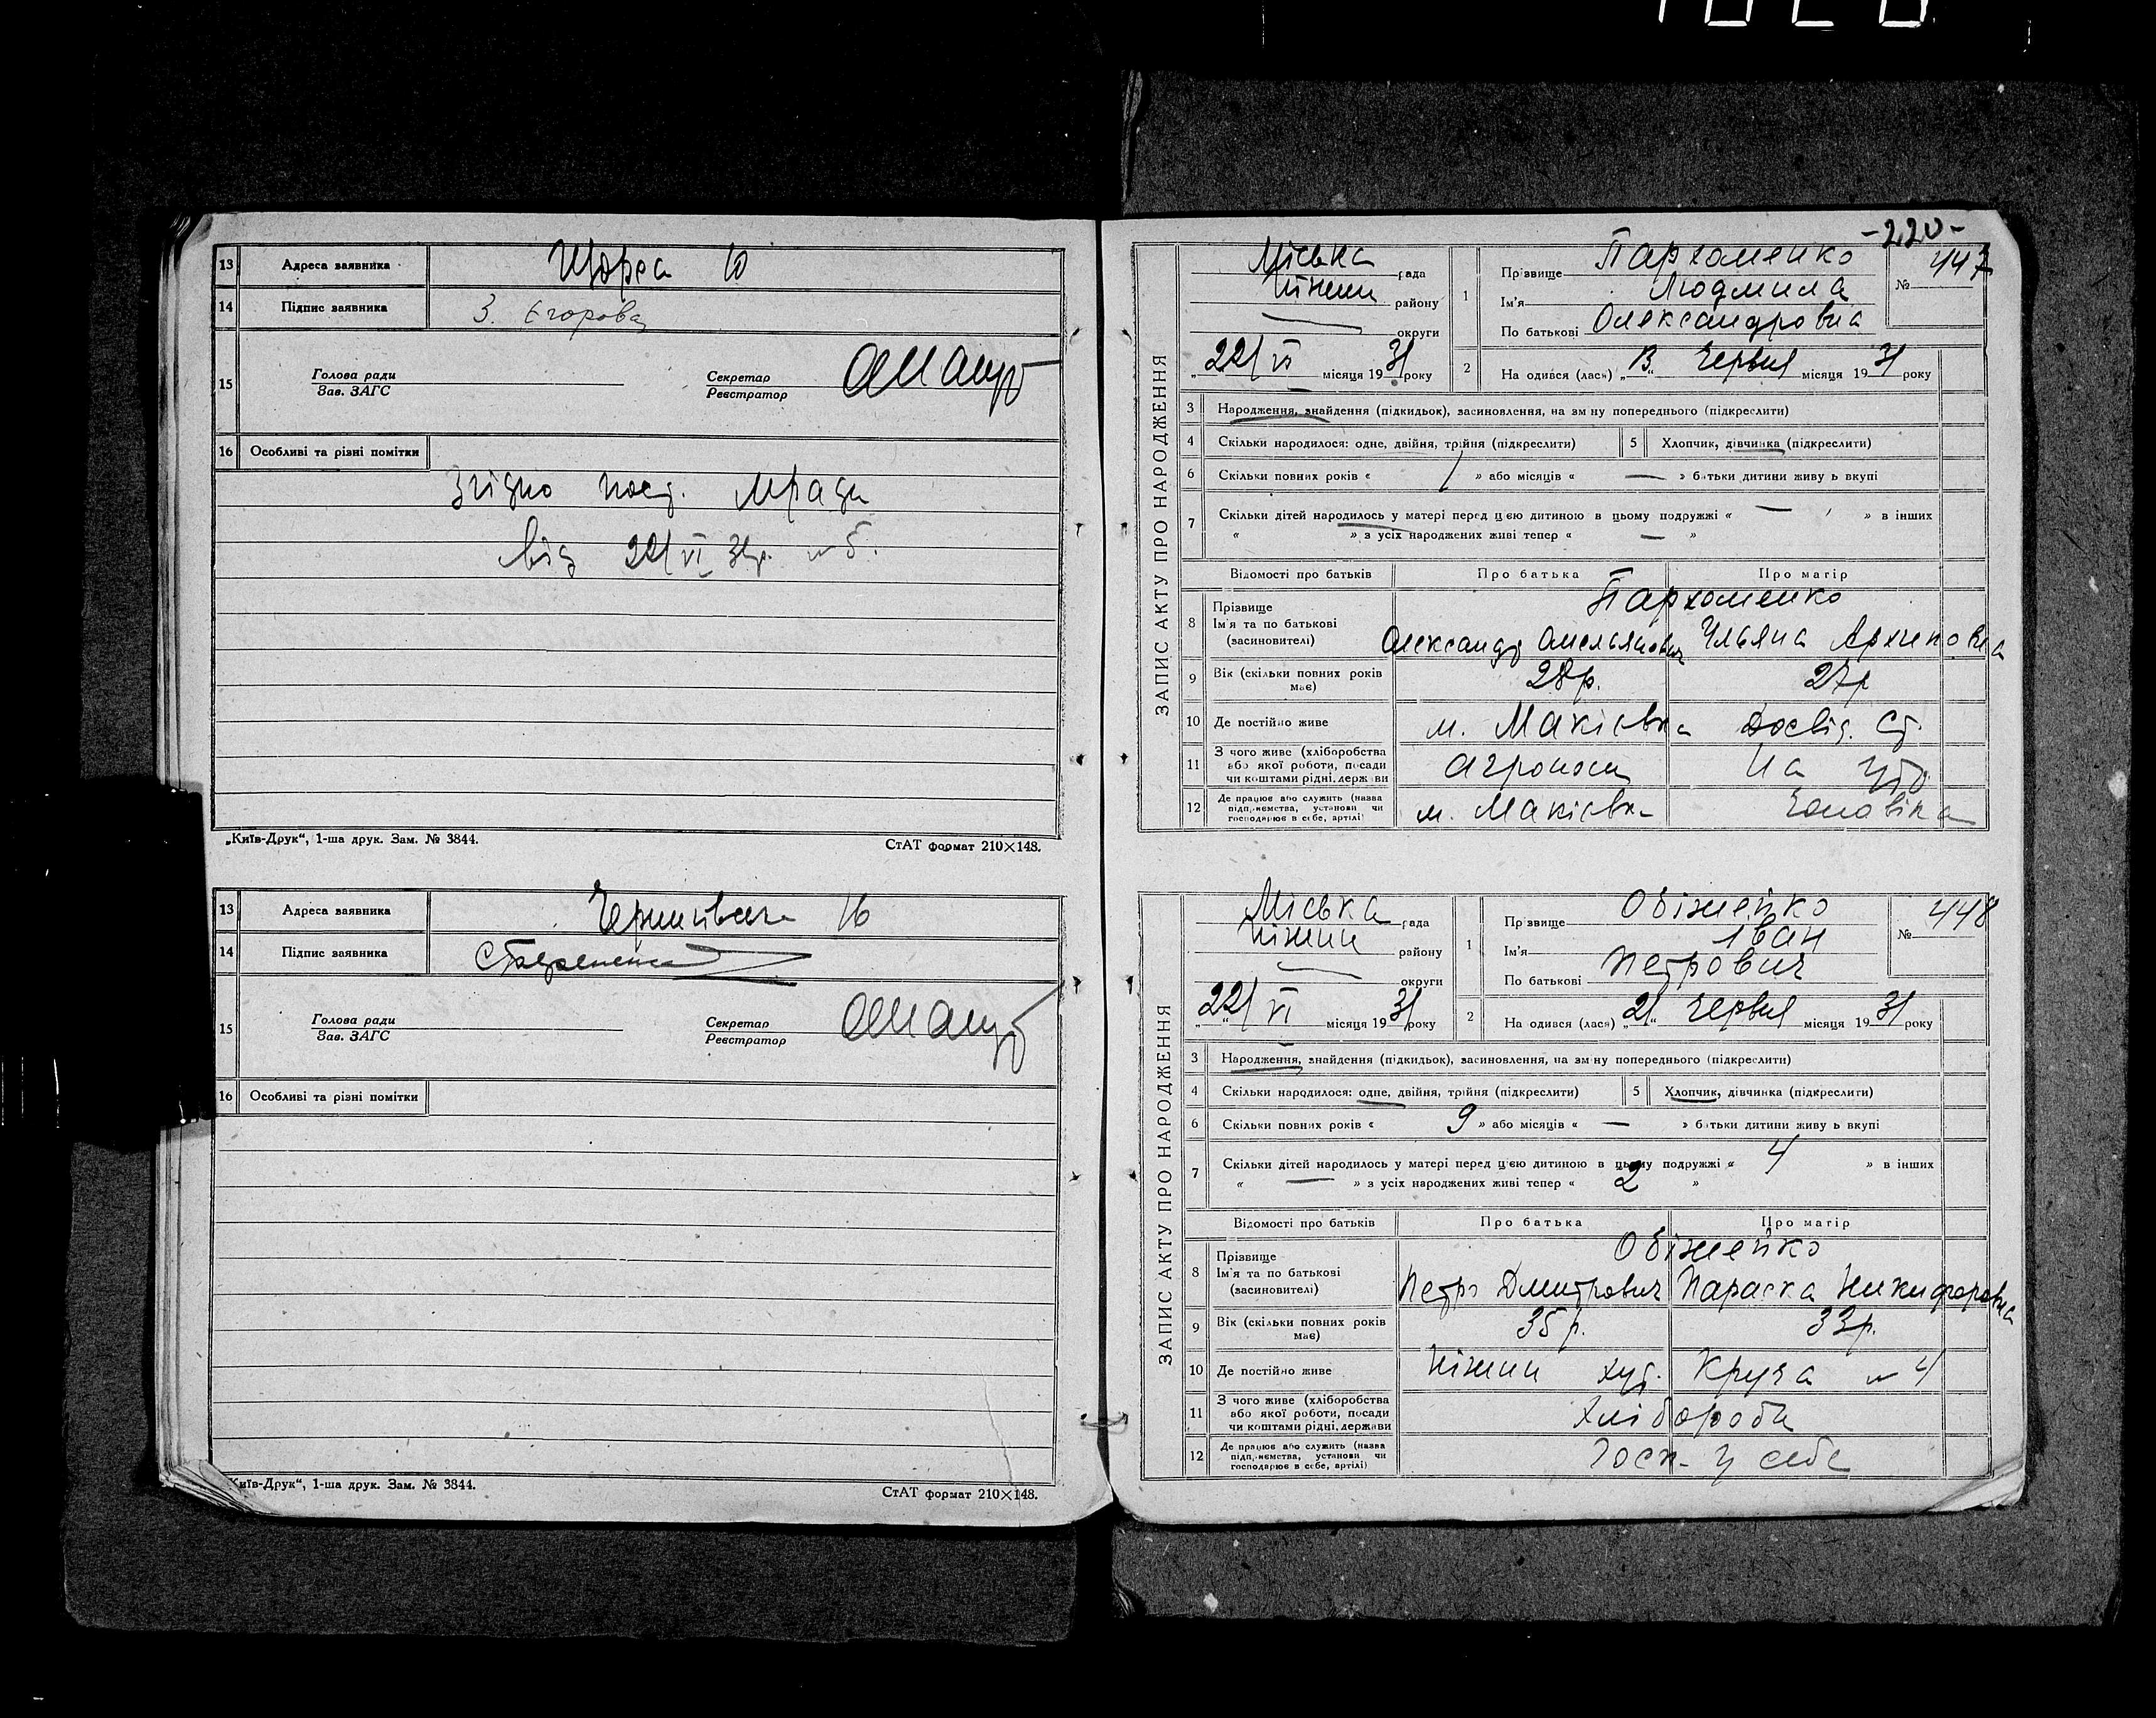 13 Адреса заявника Щорса 10
14 Підпис заявника З. Єгорова
15 Голова ради
Зав. ЗАГС
Секретар
Реєстратор
16 Особливі та різні помітки
Згідно пост. Мради
від 22/VI 31р. № 5.
„Київ-Друк“, 1-ша друк. Зам. № 3844. СтАТ формат 210×148.
13 Адреса заявника 16
14 Підпис заявника
15 Голова ради
Зав. ЗАГС
Секретар
Реєстратор
16 Особливі та різні помітки
„Київ-Друк“, 1-ша друк. Зам. № 3844. СтАТ формат 210×148.
-220-
ЗАПИС АКТУ ПРО НАРОДЖЕННЯ
Міська рада
Ніжин району
округи
„22/VI місяця 1931 року
1 Прізвище Пархоменко
Ім'я Людмила
По батькові Олександровна
№ 447
2 Народився (лась) „13“ червня місяця 1931 року
3 Народження, знайдення (підкидьок), засиновлення, на зміну попереднього (підкреслити)
4 Скільки народилося: одне, двійня, трійня (підкреслити) 5 Хлопчик, дівчинка (підкреслити)
6 Скільки повних років « 1 » або місяців « — » батьки дитини живуть вкупі
7 Скільки дітей народилось у матері перед цією дитиною в цьому подружжі « — » в інших
« » з усіх народжених живі тепер « — »
Відомості про батьків Про батька Про матір
8 Прізвище Пархоменко
Ім'я та по батькові
(засиновителі) Олександр Омельянович Ульяна Архиповна
9 Вік (скільки повних років має) 28р. 27р
10 Де постійно живе м. Макієвка Досвід. Ст.
11 З чого живе (хліборобства
або якої роботи, посади
чи коштами рідні, держави Агроном На утр
12 Де працює або служить (назва
підприємства, установи чи
господарює в себе, артілі) м. Макієвка Чоловіка
ЗАПИС АКТУ ПРО НАРОДЖЕННЯ
Міська рада
Ніжин району
округи
„22/VI місяця 1931 року
1 Прізвище Обіжейко
Ім'я Іван
По батькові Петрович
№ 448
2 Народився (лася) „21“ червня місяця 1931 року
3 Народження, знайдення (підкидьок), засиновлення, на зміну попереднього (підкреслити)
4 Скільки народилося: одне, двійня, трійня (підкреслити) 5 Хлопчик, дівчинка (підкреслити)
6 Скільки повних років « 9 » або місяців « — » батьки дитини живуть вкупі
7 Скільки дітей народилось у матері перед цією дитиною в цьому подружжі « 4 » в інших
« — » з усіх народжених живі тепер « 2 »
Відомості про батьків Про батька Про матір
8 Прізвище Обіжейко
Ім'я та по батькові
(засиновителі) Петро Дмитрович Параска Никифоровна
9 Вік (скільки повних років має) 35р. 33р.
10 Де постійно живе Ніжин хут. Круча № 4
11 З чого живе (хліборобства
або якої роботи, посади
чи коштами рідні, держави Хлібороби
12 Де працює або служить (назва
підприємства, установи чи
господарює в себе, артілі) Госп. у себе